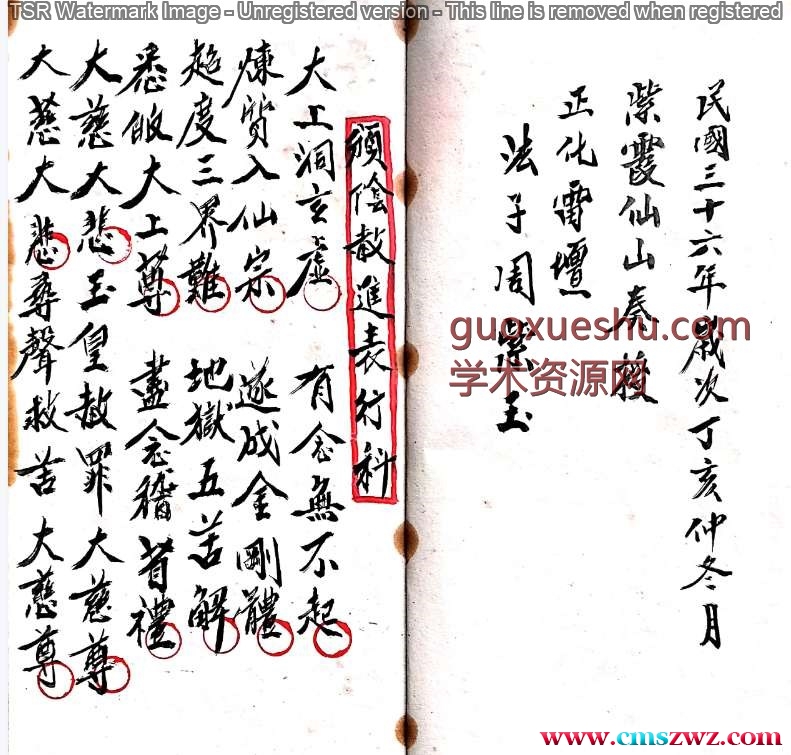 TSR Watermark Image - Unregistered version - This line is removed when registered
民國三十六年歲次丁亥仲冬月
紫霞仙山奏授
正化雷壇
法子周紫玉
頒陰赦進表行科
大上洞玄虛 有念無不起
煉質入仙宗 遂成金剛體
超度三界難 地獄五苦解
悉皈大上尊 盡念稽首禮
大慈大悲玉皇赦罪大慈尊
大慈大悲尋聲救苦大慈尊
guoxueshu.com
学术资源网
www.cmszwz.com